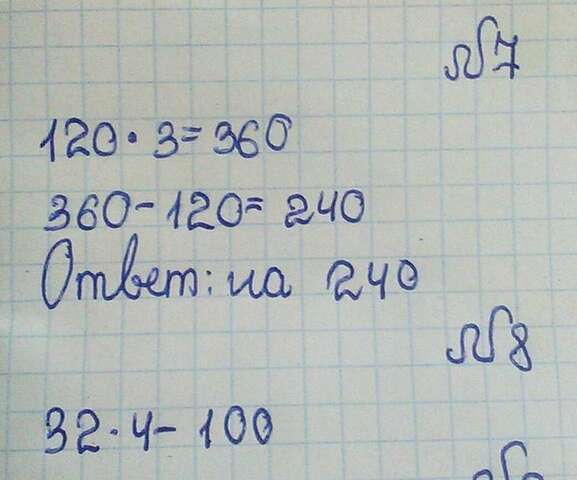 №7
120·3=360
360-120=240
Ответ: на 240
№8
32·4-100